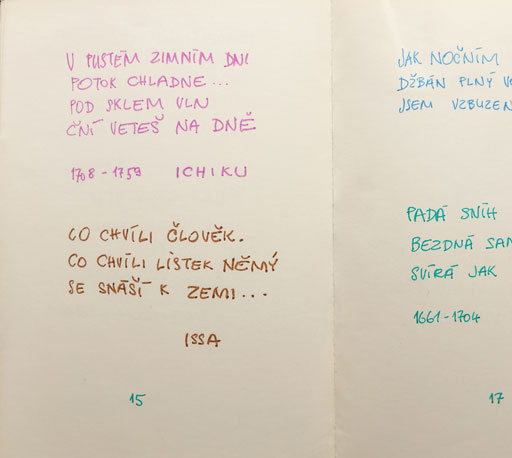 V PUSTÉM ZIMNÍM DNI
POTOK CHLADNE...
POD SKLEM VLN
ČNÍ VETEŠ NA DNĚ
1708 - 1759 ICHIKU
CO CHVÍLI ČLOVĚK.
CO CHVÍLI LÍSTEK NĚMÝ
SE SNÁŠÍ K ZEMI...
ISSA
15
JAK NOČNÍM
DŽBÁN PLNÝ
JSEM VZBUZEN
PADÁ SNÍH
BEZDNÁ
SVÍRÁ JAK
1661 - 1704
17